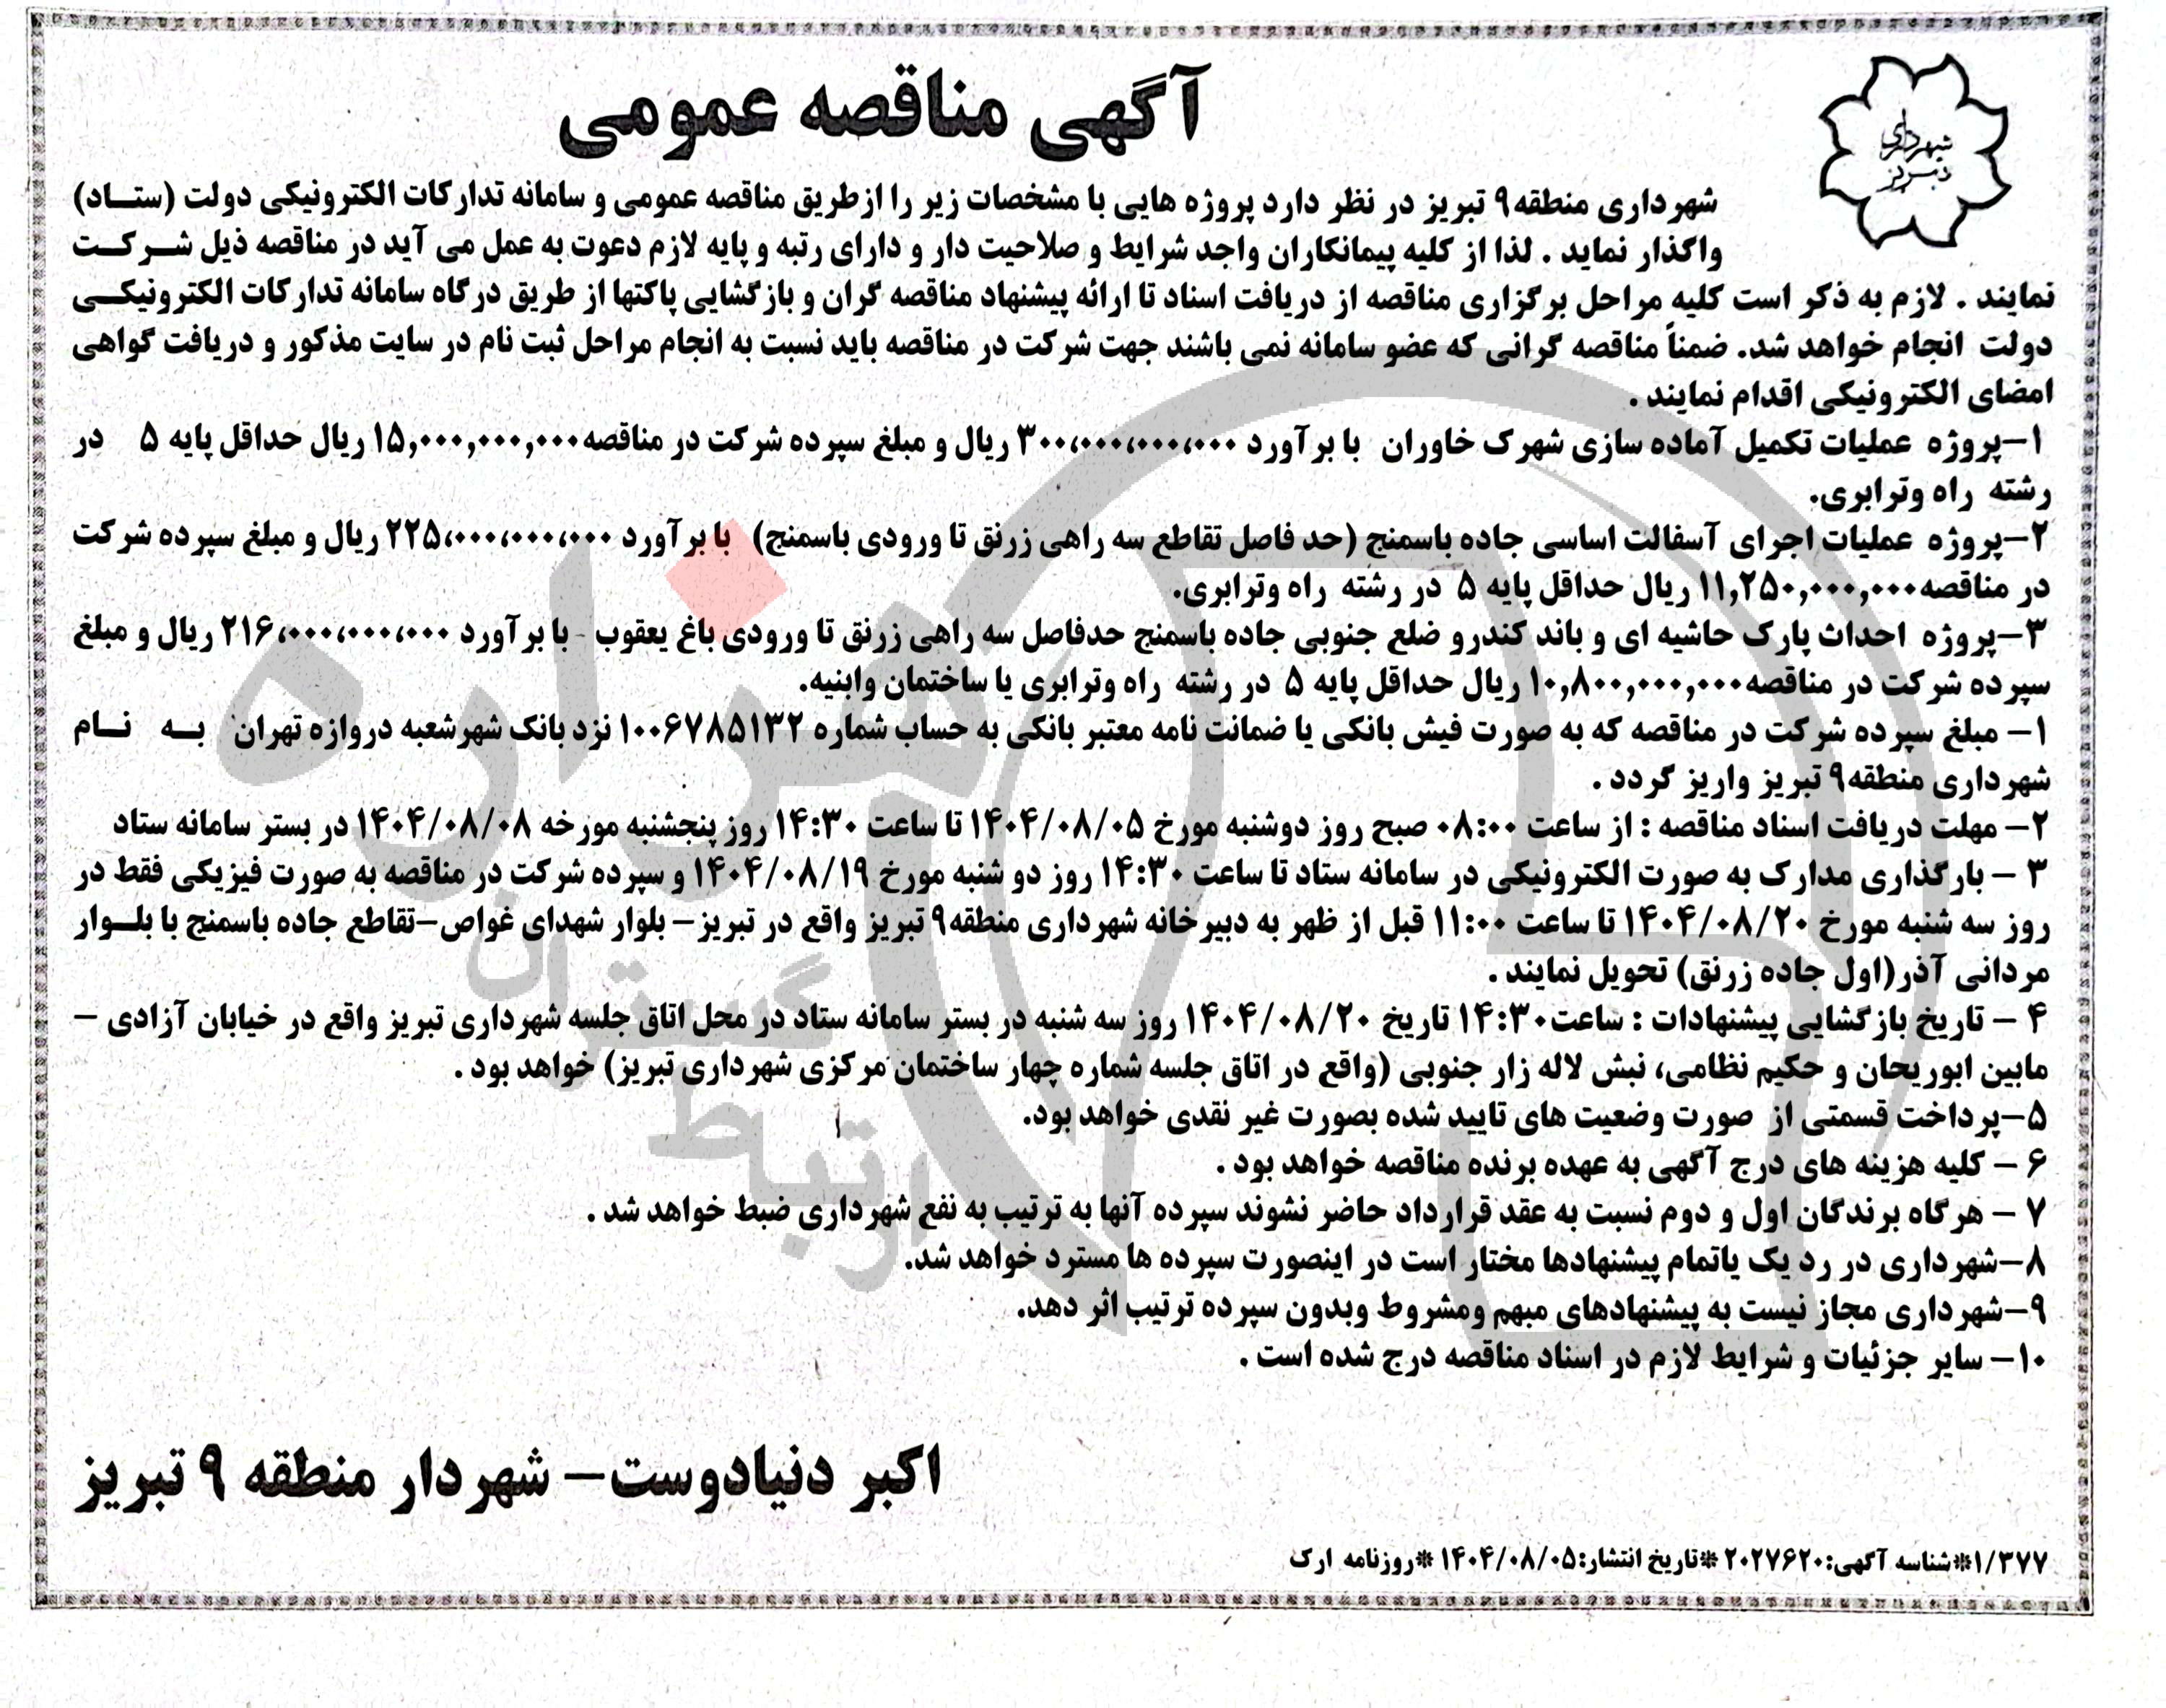 شهرداری
تبریز
آگهی مناقصه عمومی
شهرداری منطقه۹ تبریز در نظر دارد پروژه هایی با مشخصات زیر را ازطریق مناقصه عمومی و سامانه تدارکات الکترونیکی دولت (ستاد)
واگذار نماید . لذا از کلیه پیمانکاران واجد شرایط و صلاحیت دار و دارای رتبه و پایه لازم دعوت به عمل می آید در مناقصه ذیل شرکت
نمایند . لازم به ذکر است کلیه مراحل برگزاری مناقصه از دریافت اسناد تا ارائه پیشنهاد مناقصه گران و بازگشایی پاکتها از طریق درگاه سامانه تدارکات الکترونیکی
دولت انجام خواهد شد. ضمناً مناقصه گرانی که عضو سامانه نمی باشند جهت شرکت در مناقصه باید نسبت به انجام مراحل ثبت نام در سایت مذکور و دریافت گواهی
امضای الکترونیکی اقدام نمایند .
۱-پروژه عملیات تکمیل آماده سازی شهرک خاوران با برآورد ۳۰۰،۰۰۰،۰۰۰،۰۰۰ ریال و مبلغ سپرده شرکت در مناقصه۱۵,۰۰۰,۰۰۰,۰۰۰ ریال حداقل پایه ۵ در
رشته راه وترابری.
۲-پروژه عملیات اجرای آسفالت اساسی جاده باسمنج (حد فاصل تقاطع سه راهی زرنق تا ورودی باسمنج) با برآورد ۲۲۵،۰۰۰،۰۰۰،۰۰۰ ریال و مبلغ سپرده شرکت
در مناقصه۱۱,۲۵۰,۰۰۰,۰۰۰ ریال حداقل پایه ۵ در رشته راه وترابری.
۳-پروژه احداث پارک حاشیه ای و باند کندرو ضلع جنوبی جاده باسمنج حدفاصل سه راهی زرنق تا ورودی باغ یعقوب - با برآورد ۲۱۶،۰۰۰،۰۰۰،۰۰۰ ریال و مبلغ
سپرده شرکت در مناقصه۱۰,۸۰۰,۰۰۰,۰۰۰ ریال حداقل پایه ۵ در رشته راه وترابری یا ساختمان وابنیه.
۱- مبلغ سپرده شرکت در مناقصه که به صورت فیش بانکی یا ضمانت نامه معتبر بانکی به حساب شماره ۱۰۰۶۷۸۵۱۳۲ نزد بانک شهرشعبه دروازه تهران به نام
شهرداری منطقه۹ تبریز واریز گردد .
۲- مهلت دریافت اسناد مناقصه : از ساعت ۰۸:۰۰ صبح روز دوشنبه مورخ ۱۴۰۴/۰۸/۰۵ تا ساعت ۱۴:۳۰ روز پنجشنبه مورخه ۱۴۰۴/۰۸/۰۸ در بستر سامانه ستاد
۳ - بارگذاری مدارک به صورت الکترونیکی در سامانه ستاد تا ساعت ۱۴:۳۰ روز دو شنبه مورخ ۱۴۰۴/۰۸/۱۹ و سپرده شرکت در مناقصه به صورت فیزیکی فقط در
روز سه شنبه مورخ ۱۴۰۴/۰۸/۲۰ تا ساعت ۱۱:۰۰ قبل از ظهر به دبیرخانه شهرداری منطقه۹ تبریز واقع در تبریز- بلوار شهدای غواص-تقاطع جاده باسمنج با بلوار
مردانی آذر(اول جاده زرنق) تحویل نمایند .
۴ - تاریخ بازگشایی پیشنهادات : ساعت۱۴:۳۰ تاریخ ۱۴۰۴/۰۸/۲۰ روز سه شنبه در بستر سامانه ستاد در محل اتاق جلسه شهرداری تبریز واقع در خیابان آزادی -
مابین ابوریحان و حکیم نظامی، نبش لاله زار جنوبی (واقع در اتاق جلسه شماره چهار ساختمان مرکزی شهرداری تبریز) خواهد بود .
۵-پرداخت قسمتی از صورت وضعیت های تایید شده بصورت غیر نقدی خواهد بود.
۶ - کلیه هزینه های درج آگهی به عهده برنده مناقصه خواهد بود .
۷ - هرگاه برندگان اول و دوم نسبت به عقد قرارداد حاضر نشوند سپرده آنها به ترتیب به نفع شهرداری ضبط خواهد شد .
۸-شهرداری در رد یک یاتمام پیشنهادها مختار است در اینصورت سپرده ها مسترد خواهد شد.
۹-شهرداری مجاز نیست به پیشنهادهای مبهم ومشروط وبدون سپرده ترتیب اثر دهد.
۱۰- سایر جزئیات و شرایط لازم در اسناد مناقصه درج شده است .
اکبر دنیادوست- شهردار منطقه ۹ تبریز
۱/۳۷۷*شناسه آگهی:۲۰۲۷۶۲۰ *تاریخ انتشار:۱۴۰۴/۰۸/۰۵ *روزنامه ارک
هزاره
گستران
ارتباط